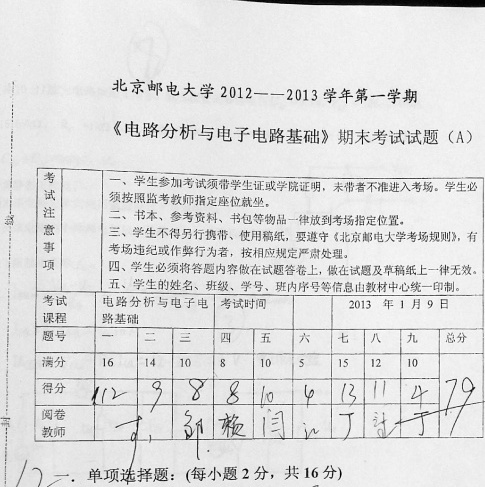 北京邮电大学 2012——2013 学年第一学期
《电路分析与电子电路基础》期末考试试题（A）
考试注意事项
一、学生参加考试须带学生证或学院证明，未带者不准进入考场。学生必
须按照监考教师指定座位就坐。
二、书本、参考资料、书包等物品一律放到考场指定位置。
三、学生不得另行携带、使用稿纸，要遵守《北京邮电大学考场规则》，有
考场违纪或作弊行为者，按相应规定严肃处理。
四、学生必须将答题内容做在试题答卷上，做在试题及草稿纸上一律无效。
五、学生的姓名、班级、学号、班内序号等信息由教材中心统一印制。
考试课程 电路分析与电子电路基础 考试时间 2013 年 1 月 9 日
题号 一 二 三 四 五 六 七 八 九 总分
满分 16 14 10 8 10 5 15 12 10
得分 12 9 8 8 10 4 13 11 4 79
阅卷教师 邹 闫 丁 丁
12 一、单项选择题：(每小题 2 分，共 16 分)